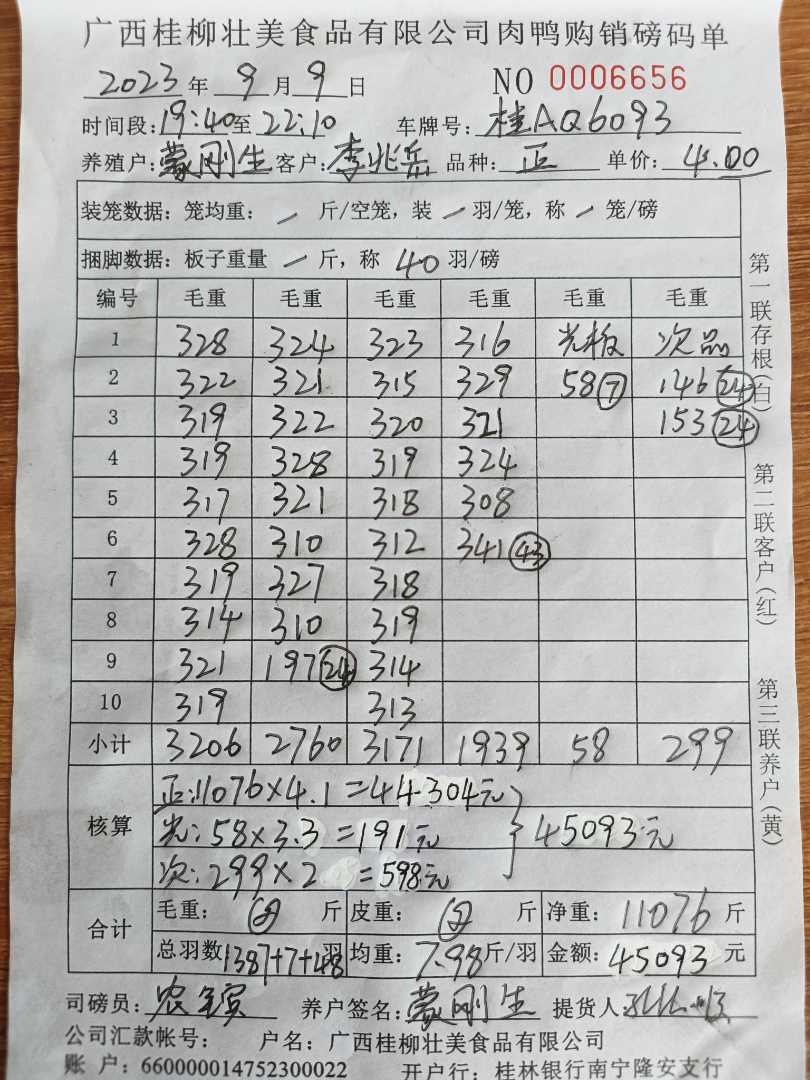 广西桂柳壮美食品有限公司肉鸭购销磅码单
2023 年 9 月 9 日 NO 0006656
时间段: 19:40 至 22:10 车牌号: 桂AQ6093
养殖户: 蒙刚生 客户: 李兆岳 品种: 正 单价: 4.00
装笼数据: 笼均重: / 斤/空笼, 装 / 羽/笼, 称 / 笼/磅
捆脚数据: 板子重量 / 斤, 称 40 羽/磅
编号 毛重 毛重 毛重 毛重 毛重 毛重
1 328 324 323 316 光板 次品
2 322 321 315 329 58⑦ 146㉔
3 319 322 320 321 153㉔
4 319 328 319 324
5 317 321 318 308
6 328 310 312 341㊸
7 319 327 318
8 314 310 319
9 321 197㉔ 314
10 319 313
小计 3206 2760 3171 1939 58 299
核算 正:11076×4.1=44304元
光:58×3.3=191元 } 45093元
次:299×2 =598元
合计 毛重: 斤 皮重: 斤 净重: 11076 斤
总羽数 1387+7+48 羽 均重: 7.98 斤/羽 金额: 45093 元
司磅员: 养户签名: 蒙刚生 提货人
公司汇款帐号: 户名: 广西桂柳壮美食品有限公司
账 户: 660000014752300022 开户行: 桂林银行南宁隆安支行
第一联存根(白) 第二联客户(红) 第三联养户(黄)